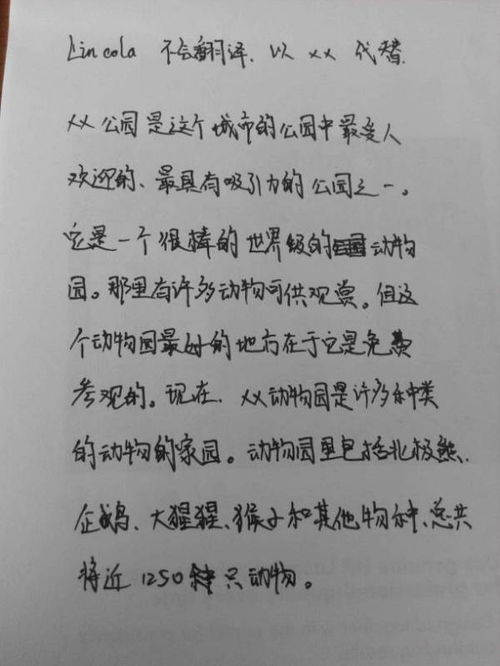 Lincola 不会翻译. 以 xx 代替.
xx 公园是这个城市的公园中最受人
欢迎的、最具有吸引力的公园之一。
它是一个很棒的世界级的动物
园。那里有许多动物可供观赏。但这
个动物园最好的地方在于它是免费
参观的。现在, xx动物园是许多种类
的动物的家园。动物园里包括北极熊.
企鹅、大猩猩、猴子和其他物种、总共
将近 1250 只动物。